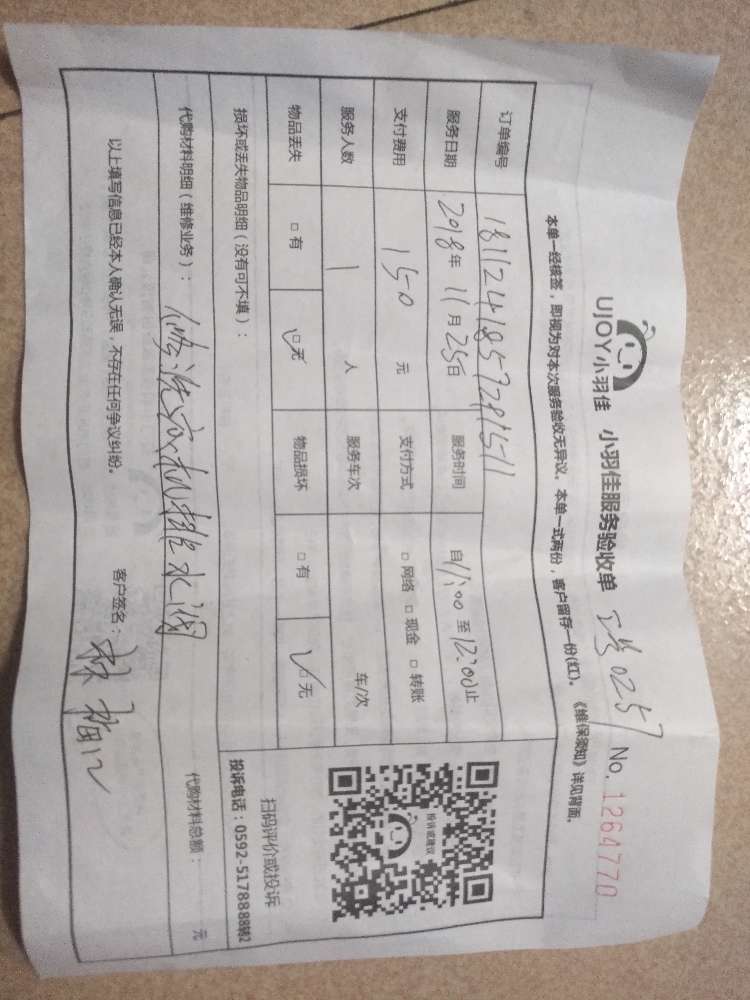 UJOY小羽佳 小羽佳服务验收单 0257 No.1264770
本单一经核签，即视为对本次服务验收无异议。本单一式两份，客户留存一份(红)。《维保须知》详见背面。
订单编号
服务日期 2018年 11月 25日 服务时间 自11:00至12:00止
支付费用 150 元 支付方式 □网络 □现金 □转账
服务人数 1 人 服务车次 车/次
物品丢失 □有 □无 物品损坏 □有 □无
损坏或丢失物品明细（没有可不填）：
代购材料明细（维修业务）： 洗衣机排水阀 代购材料总额： 元
以上填写信息已经本人确认无误，不存在任何争议纠纷。 客户签名：
投诉或建议
扫码评价或投诉
投诉电话：0592-5178888转2